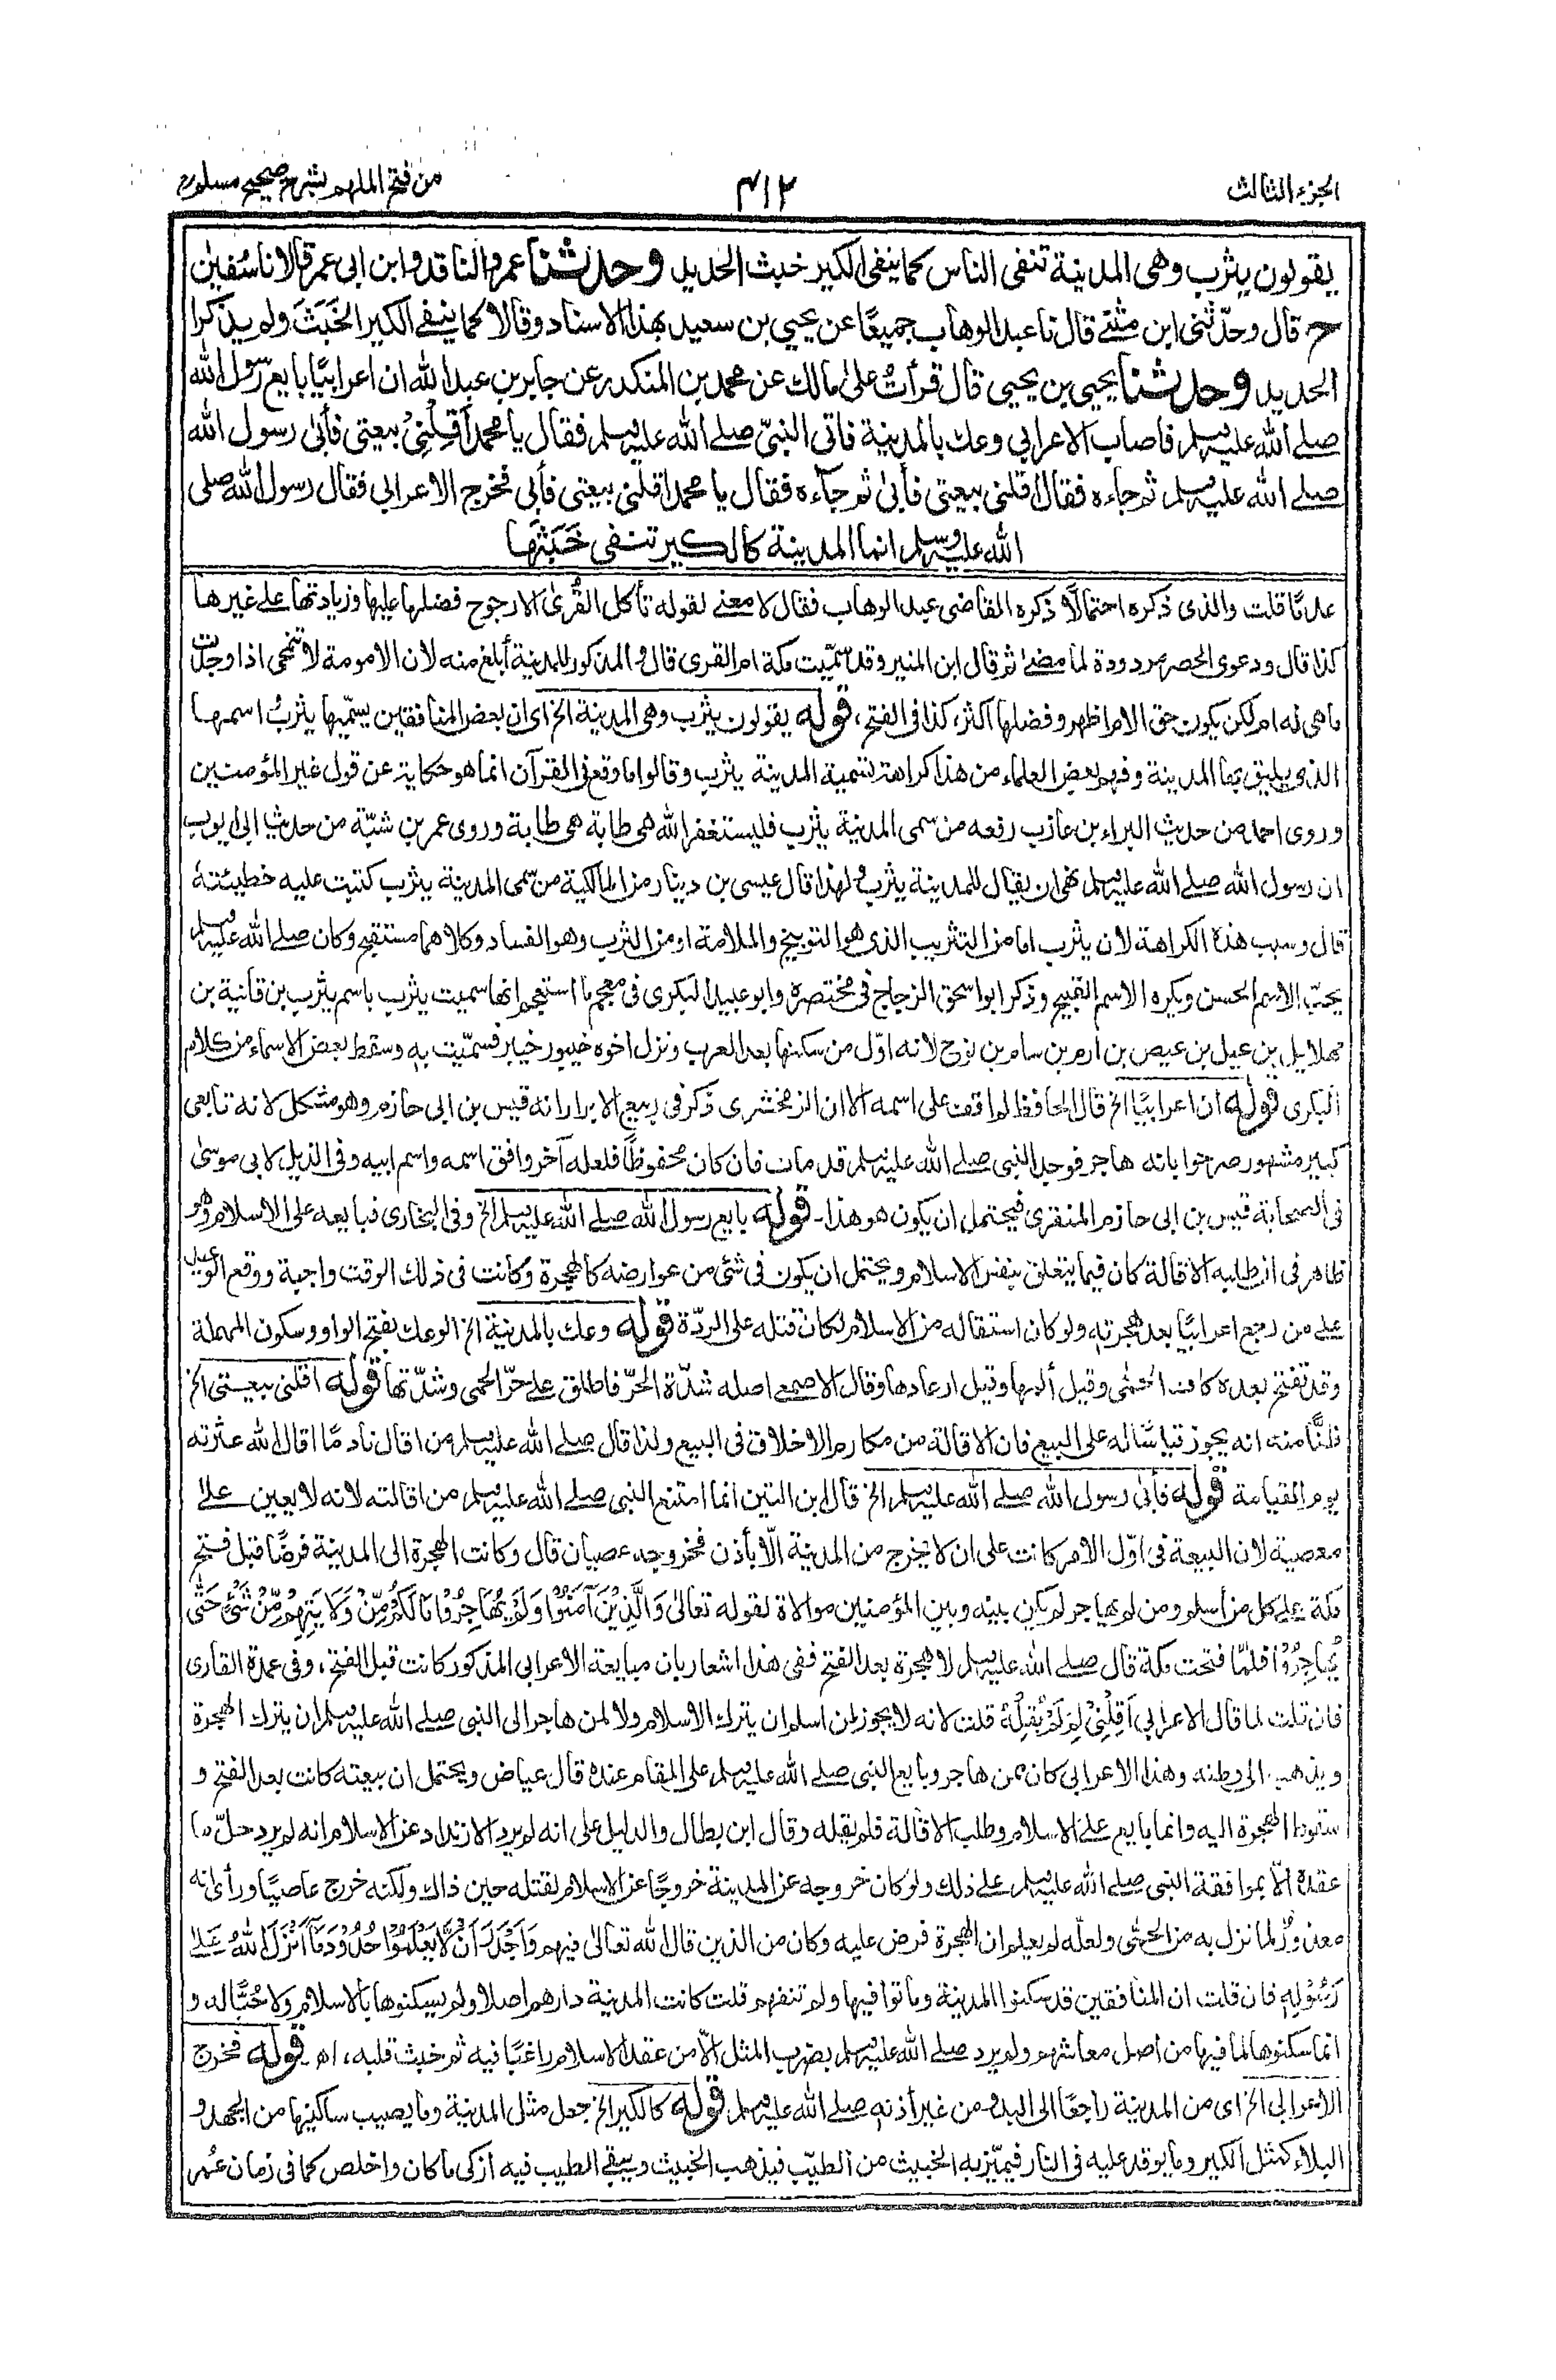 الجزء الثالث ٤١٢ من فتح الملهم بشرح صحيح مسلم
يقولون يثرب وهى المدينة تنفى الناس كما ينفى الكير خبث الحديد وحدثنا عمرو الناقد وابن ابى عمر قالا نا سفين
ح قال وحدّثنى ابن مثنّے قال نا عبد الوهاب جميعًا عن يحيي بن سعيد بهذا الاسناد وقالا كما ينفے الكير الخَبَثَ ولم يذكرا
الحديد وحدثنا يحيي بن يحيي قال قرأتُ على مالك عن محمد بن المنكدر عن جابر بن عبد الله ان اعرابيًّا بايع رسول الله
صلے الله عليه وسلم فاصاب الاعرابي وعك بالمدينة فاتى النبيّ صلے الله عليه وسلم فقال يا محمد أَقِلْنِيْ بيعتي فأبىٰ رسول الله
صلے الله عليه وسلم ثم جاءه فقال اقلنى بيعتى فأبىٰ ثم جآءه فقال يا محمد اقلنى بيعتى فأبى فخرج الاعرابى فقال رسول الله صلى
الله عليه وسلم انما المدينة كالكير تنفى خَبَثَها
عدنًا قلت والذى ذكره احتمالًا ذكره القاضى عبد الوهاب فقال لا معنے لقوله تأكل القُرىٰ الا رجوح فضلها عليها وزيادتها علے غيرها
كذا قال ودعوى الحصر مردودة لما مضىٰ ثم قال ابن المنير وقد سمّيت مكة ام القرى قال والمذكور للمدينة أبلغ منه لان الامومة لا تنمحى اذا وجدت
ما هى له ام لكن يكون حق الام اظهر وفضلها اكثر، كذا فى الفتح، قوله يقولون يثرب وهى المدينة الخ اى ان بعض المنافقين يسمّيها يثربُ اسمها
الذى يليق بها المدينة وفهم بعض العلماء من هذا كراهة تسمية المدينة يثرب وقالوا ما وقع فى القرآن انما هو حكاية عن قول غير المؤمنين
وروى احمد من حديث البراء بن عازب رفعه من سمى المدينة يثرب فليستغفر الله هى طابة هى طابة وروى عمر بن شبّة من حديث ابى ايوب
ان رسول الله صلے الله عليه وسلم نهى ان يقال للمدينة يثرب ولهذا قال عيسى بن دينار من المالكية من سمى المدينة يثرب كتبت عليه خطيئته
قال وسبب هذه الكراهة لان يثرب اما من التثريب الذى هو التوبيخ والملامة او من الثرب وهو الفساد وكلاهما مستقبح وكان صلے الله عليه وسلم
يحبّ الاسم الحسن ويكره الاسم القبيح وذكر ابو اسحق الزجاج فى مختصره وابو عبيد البكرى فى معجم ما استعجم انها سميت يثرب باسم يثرب بن قانية بن
مهلايل بن عيل بن عيص بن ارم بن سام بن نوح لانه اوّل من سكنها بعد العرب ونزل اخوه خيبور خيابر فسمّيت به وسقط بعض الاسماء من كلام
البكرى قوله ان اعرابيًّا الخ قال الحافظ لم اقف على اسمه الا ان الزمخشرى ذكر فى ربيع الابرار انه قيس بن ابى حازم وهو مشكل لانه تابعى
كبير مشهور صرحوا بانه هاجر فوجد النبى صلے الله عليه وسلم قد مات فان كان محفوظًا فلعله آخر وافق اسمه واسم ابيه وفى الذيل لابى موسىٰ
فى الصحابة قيس بن ابى حازم المنقرى فيحتمل ان يكون هو هذا۔ قوله بايع رسول الله صلے الله عليه وسلم الخ وفى البخارى فبايعه على الاسلام وهو
ظاهر فى ان طلبه الاقالة كان فيما يتعلق بنفس الاسلام ويحتمل ان يكون فى شئ من عوارضه كالهجرة وكانت فى ذلك الوقت واجبة ووقع الوعيد
علے من رجع اعرابيًا بعد هجرته ولو كان استقاله من الاسلام لكان قتله على الردّة قوله وعك بالمدينة الخ الوعك بفتح الواو وسكون المهملة
وقد تفتح بعده كاف الحمّى وقيل ألمها وقيل ارعادها وقال الاصمعى اصله شدّة الحرّ فاطلق علے حرّ الحمى وشدّتها قوله اقلنى بيعتى الخ
ظنًّا منه انه يجوز قياسًا له على البيع فان الاقالة من مكارم الاخلاق فى البيع ولذا قال صلے الله عليه وسلم من اقال نادمًا اقال الله عثرته
يوم القيامة قوله فأبى رسول الله صلے الله عليه وسلم الخ قال ابن التين انما امتنع النبى صلے الله عليه وسلم من اقالته لانه لا يعين علىٰ
معصية لان البيعة فى اوّل الامر كانت على ان لا يخرج من المدينة الّا بأذن فخروجه عصيان قال وكانت الهجرة الى المدينة فرضًا قبل فتح
مكة على كل من أسلم ومن لم يهاجر لم يكن بينه وبين المؤمنين موالاة لقوله تعالىٰ وَالَّذِيْنَ آمَنُوْا وَلَمْ يُهَاجِرُوْا مَا لَكُمْ مِّنْ وَلَايَتِهِمْ مِّنْ شَيْءٍ حَتّٰى
يُهَاجِرُوْا فلمّا فتحت مكة قال صلے الله عليه وسلم لا هجرة بعد الفتح ففى هذا اشعار بان مبايعة الاعرابى المذكور كانت قبل الفتح، وفى عمدة القارى
فان قلت لما قال الاعرابي اَقِلْنِيْ لِمَ لَمْ يُقِلْهُ قلت لانه لا يجوز لمن اسلم ان يترك الاسلام ولا لمن هاجر الى النبى صلے الله عليه وسلم ان يترك الهجرة
ويذهب الى وطنه وهذا الاعرابى كان ممن هاجر وبايع النبى صلے الله عليه وسلم على المقام عنده قال عياض ويحتمل ان بيعته كانت بعد الفتح و
سقوط الهجرة اليه وانما بايع علے الاسلام وطلب الاقالة فلم يقله وقال ابن بطال والدليل على انه لم يرد الارتداد عن الاسلام انه لم يرد حلّ ما
عقده الّا بموافقة النبى صلے الله عليه وسلم علے ذلك ولو كان خروجه عن المدينة خروجًا عن الاسلام لقتله حين ذاك ولكنه خرج عاصيًا ورأى انه
معذورٌ لما نزل به من الحمّى ولعلّه لم يعلم ان الهجرة فرض عليه وكان من الذين قال الله تعالىٰ فيهم وَاَجْدَرُ اَنْ لَّا يَعْلَمُوْا حُدُوْدَ مَا اَنْزَلَ اللهُ عَلىٰ
رَسُوْلِهٖ فان قلت ان المنافقين قد سكنوا المدينة وماتوا فيها ولم تنفهم قلت كانت المدينة دارهم اصلا ولم يسكنوها بالاسلام ولا حُبًّا له و
انما سكنوها لما فيها من اصل معاشهم ولم يرد صلے الله عليه وسلم بضرب المثل الّا من عقد الاسلام راغبًا فيه ثم خبث قلبه، اهـ قوله فخرج
الاعرابى الخ اى من المدينة راجعًا الى البدو من غير أذنه صلے الله عليه وسلم قوله كالكير الخ جعل مثل المدينة وما يصيب ساكنيها من الجهد و
البلاء كمثل الكير وما يوقد عليه فى النار فيميّز به الخبيث من الطيّب فيذهب الخبيث ويبقے الطيب فيه ازكى ما كان واخلص كما فى زمان عُمر